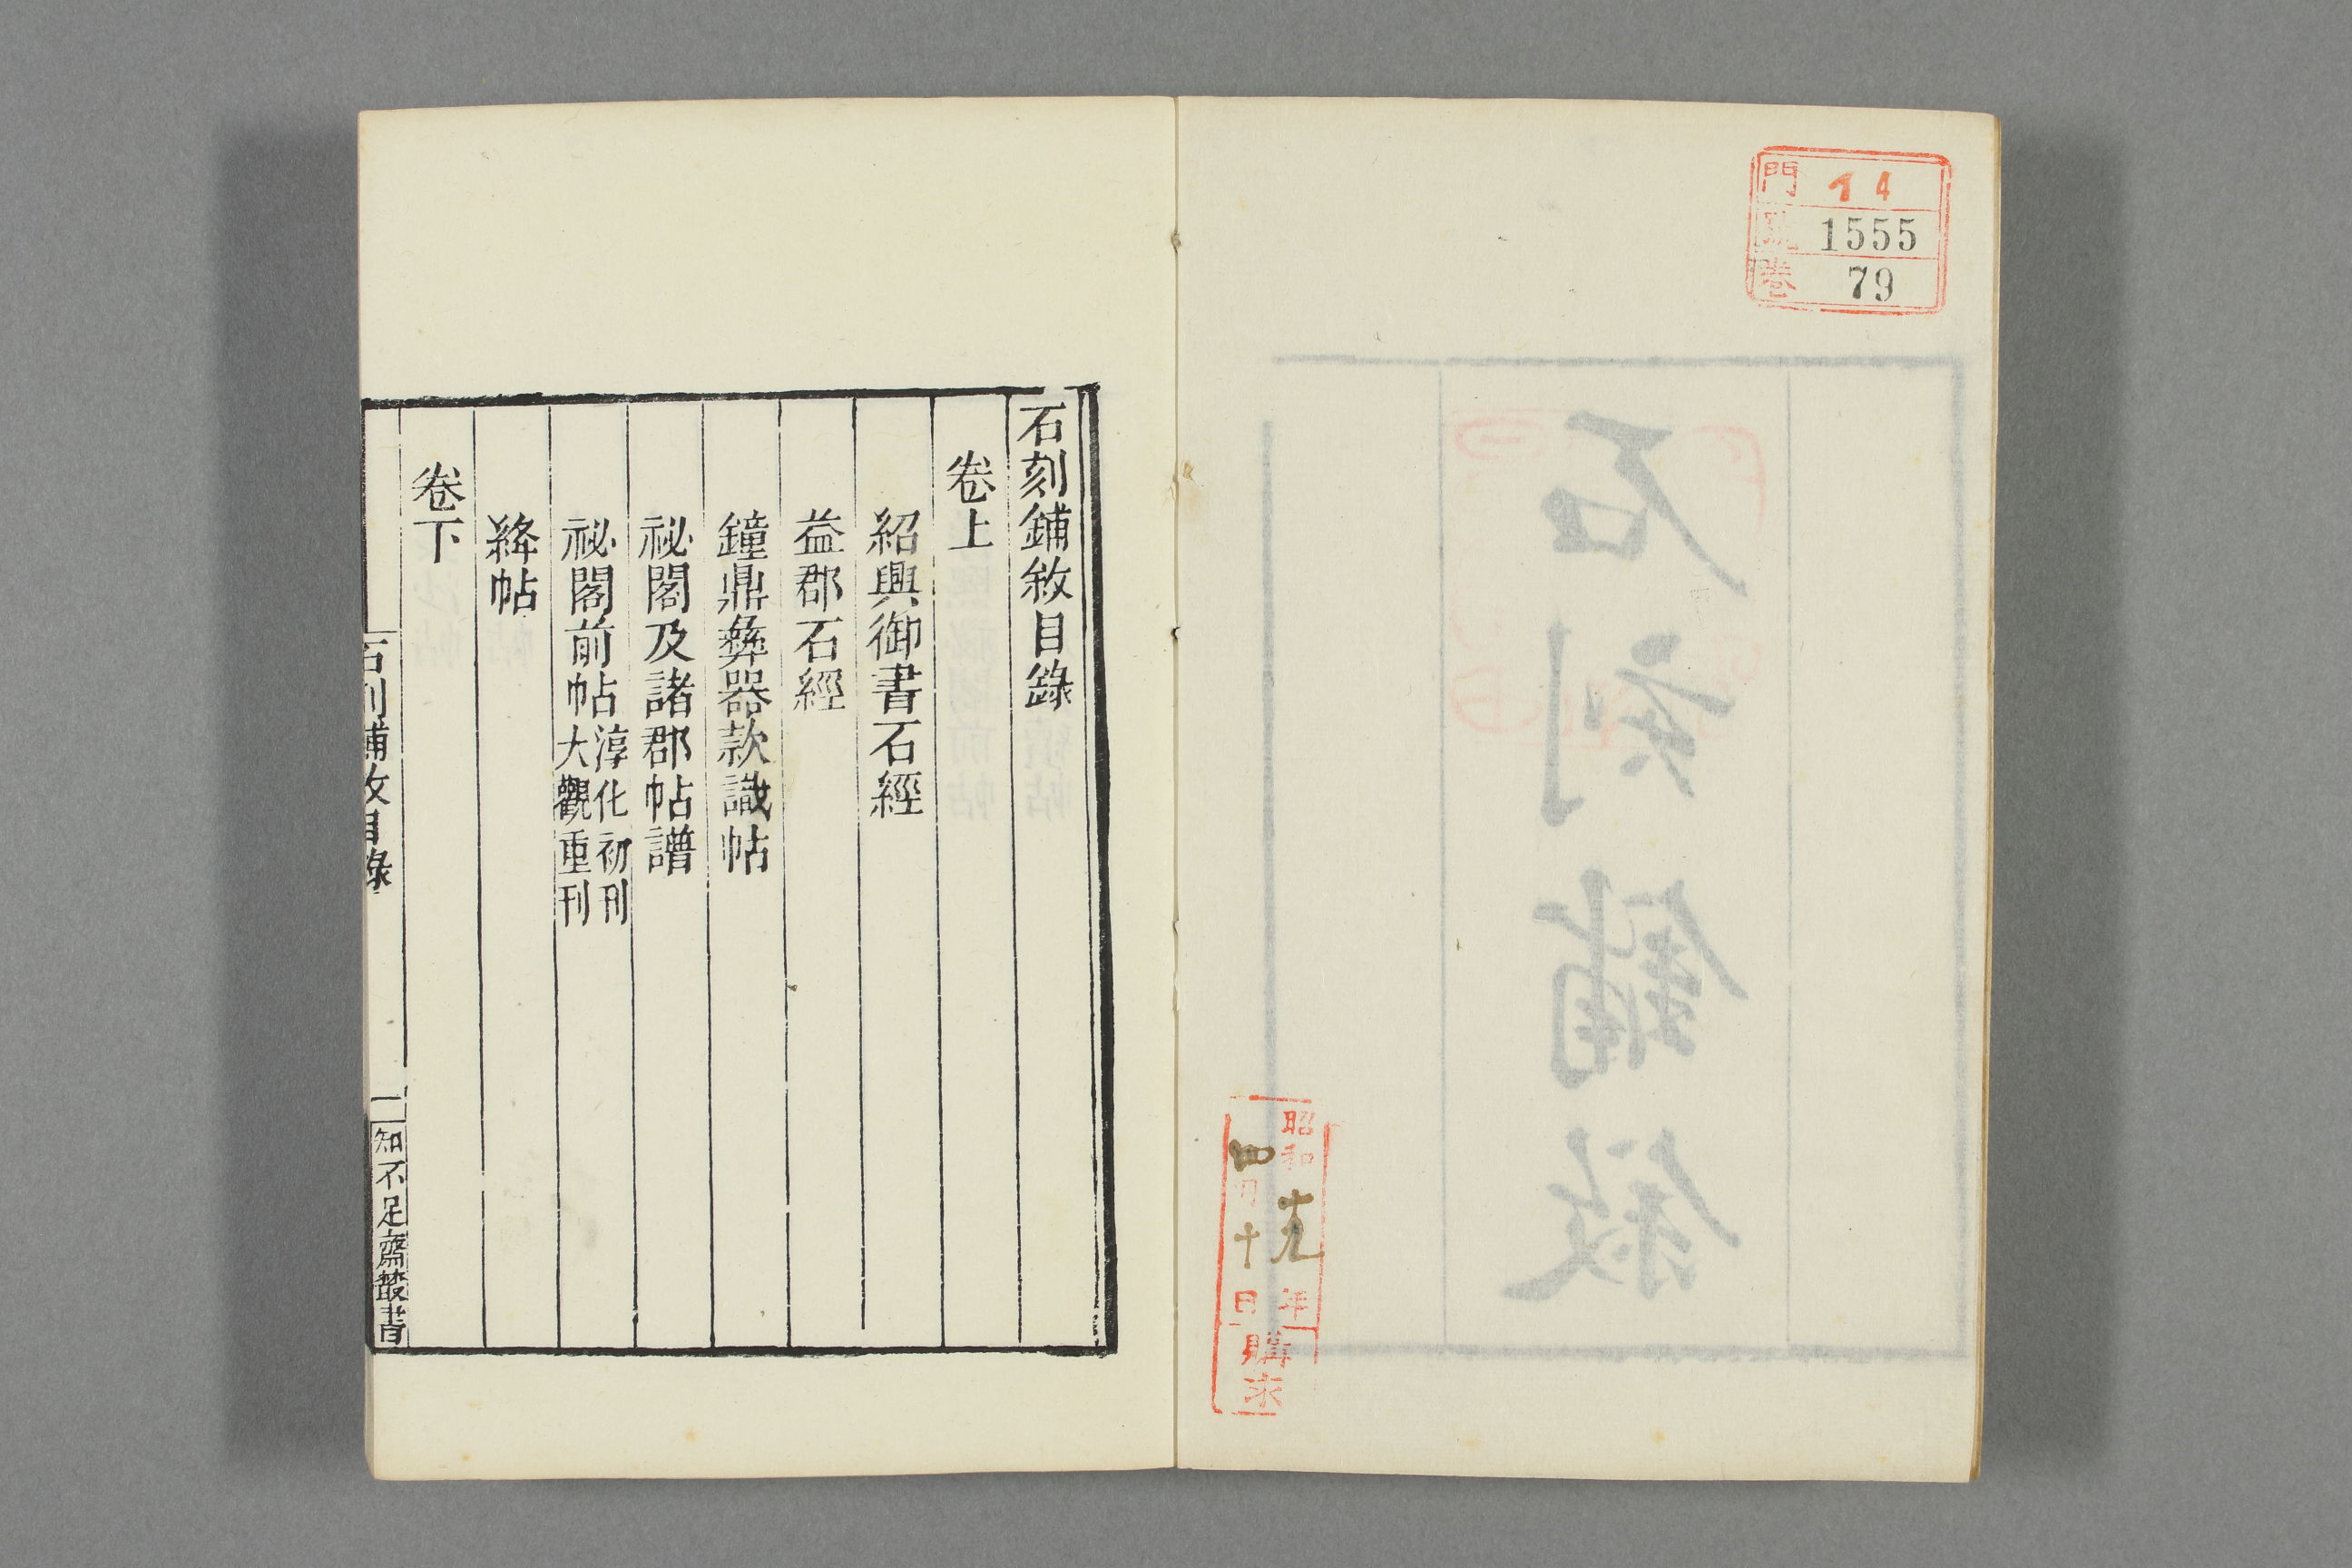 門 14
號 1555
卷 79
石刻鋪敘
昭和十九年
四月十日
購求
石刻鋪敘目錄
卷上
紹興御書石經
益郡石經
鐘鼎彝器款識帖
祕閣及諸郡帖譜
祕閣前帖 淳化初刊
大觀重刊
絳帖
卷下
石刻鋪敘目錄
一
知不足齋叢書